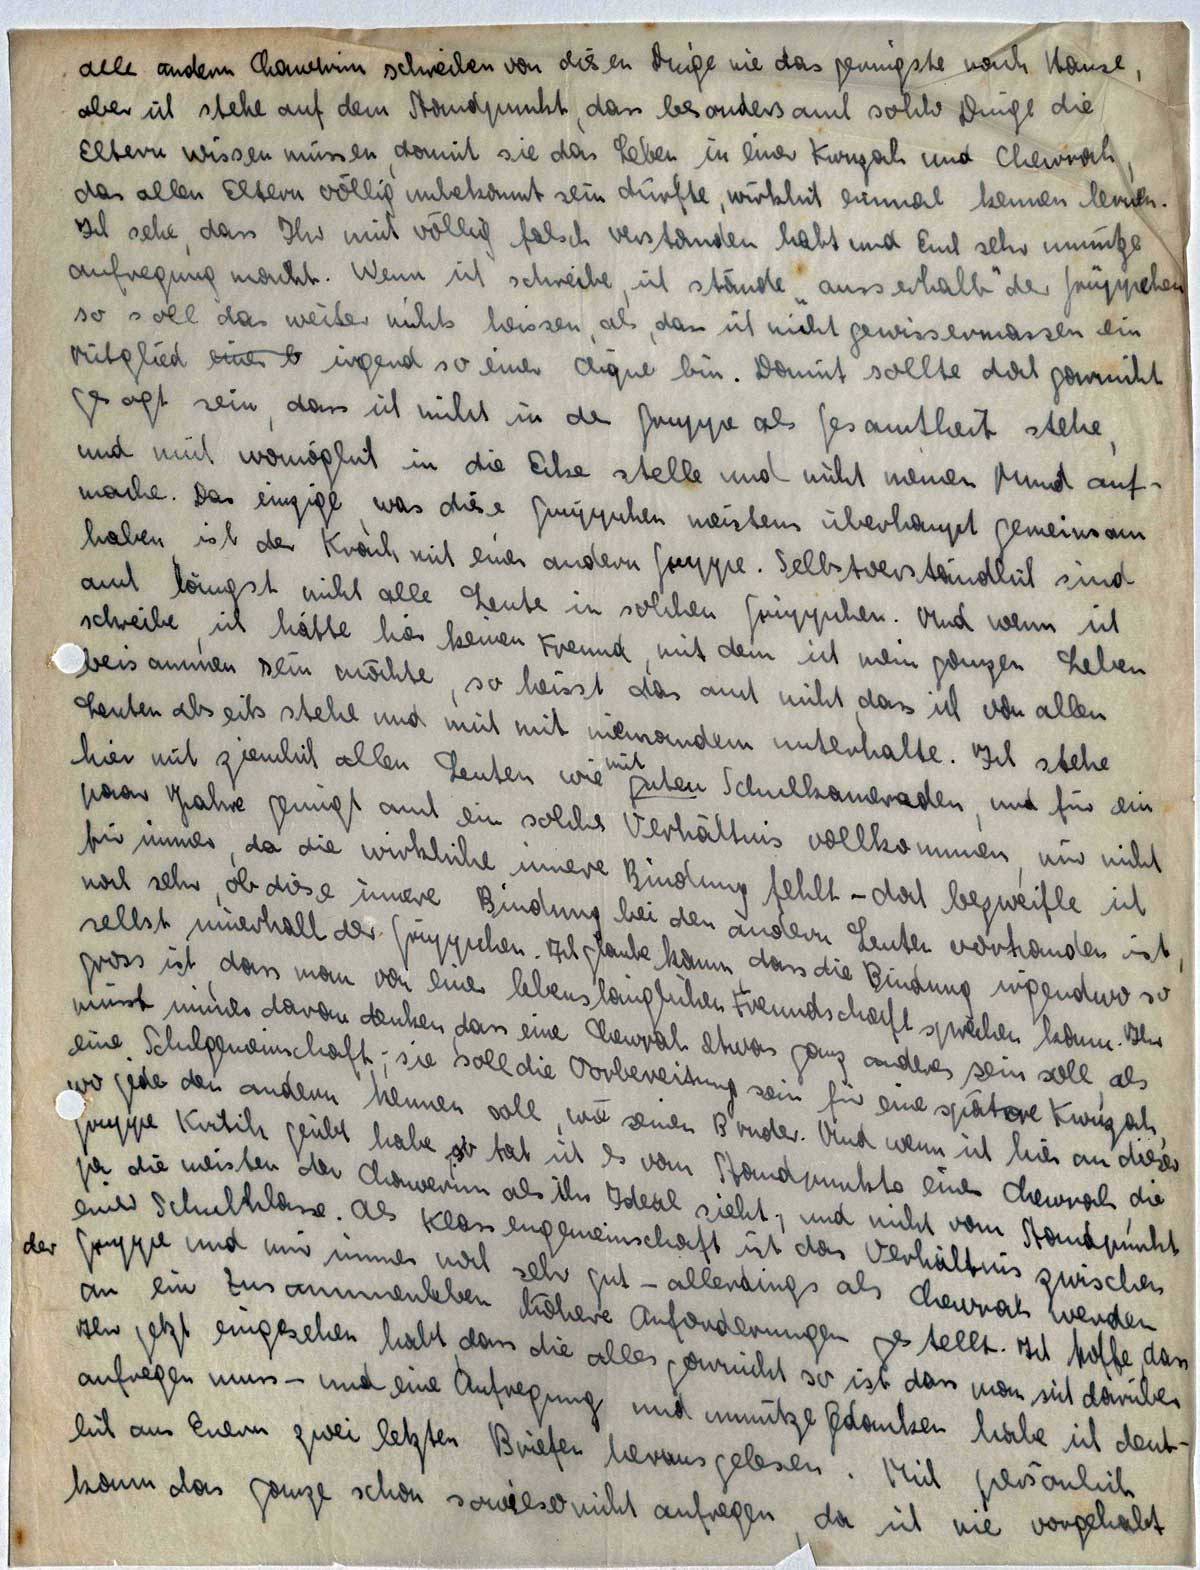 alle andern Chawerim schreiben von diesen Dinge nie das geringste nach Hause,
aber ich stehe auf dem Standpunkt, dass besonders auch solche Dinge die
Eltern wissen müssen, damit sie das Leben in einer Kwuzah und Chewrah,
das allen Eltern völlig unbekannt sein dürfte, wirklich einmal kennen lernen.
Ich sehe, dass Ihr mich völlig falsch verstanden habt und Euch sehr unnütze
aufregung macht. Wenn ich schreibe, ich stände "ausserhalb" der Grüppchen
so soll das weiter nichts heissen, als, dass ich nicht gewissermassen ein
Mitglied irgend so einer Clique bin. Damit sollte doch garnicht
gesagt sein, dass ich nicht in der Gruppe als Gesamtheit stehe,
und mich womöglich in die Ecke stelle und nicht meinen Mund auf-
mache. Das einzige, was diese Grüppchen meistens überhaupt gemeinsam
haben, ist der Krach mit einer andern Gruppe. Selbstverständlich sind
auch längst nicht alle Leute in solchen Grüppchen. Und wenn ich
schreibe, ich hätte hier keinen Freund, mit dem ich mein ganzen Leben
beisammen sein möchte, so heisst das auch nicht, dass ich von allen
Leuten abseits stehe und mich mit niemandem unterhalte. Ich stehe
hier mit ziemlich allen Leuten wie mit guten Schulkameraden, und für ein
paar Jahre genügt auch ein solches Verhältnis vollkommen, nur nicht
für immer, da die wirkliche innere Bindung fehlt – doch bezweifle ich
noch sehr, ob diese innere Bindung bei den andern Leuten vorhanden ist,
selbst innerhalb der Grüppchen. Ich glaube kaum, dass die Bindung irgendwo so
gross ist, dass man von einer lebenslänglichen Freundschaft sprechen kann. Ihr
müsst immer daran denken, dass eine Chewrah etwas ganz anderes sein soll, als
eine Schulgemeinschaft; sie soll die Vorbereitung sein für eine spätere Kwuzah,
wo jeder den andern kennen soll, wie seinen Bruder. Und wenn ich hier an dieser
Gruppe Kritik geübt habe, so tat ich es vom Standpunkte einer Chewrah, die
ja die meisten der Chawerim als ihr Ideal sieht; und nicht vom Standpunkt
einer Schulklasse. Als Klassengemeinschaft ist das Verhältnis zwischen
der Gruppe und mir immer noch sehr gut – allerdings als Chewrah werden
an ein Zusammenleben höhere Anforderungen gestellt. Ich hoffe, dass
Ihr jetzt eingesehen habt, dass die alles garnicht so ist, dass man sich darüber
aufregen muss – und eine Aufregung und unnütze Gedanken habe ich deut-
lich aus Euern zwei letzten Briefen herausgelesen. Mich persönlich
kann das ganze schon sowieso nicht aufregen, da ich nie vorgehabt